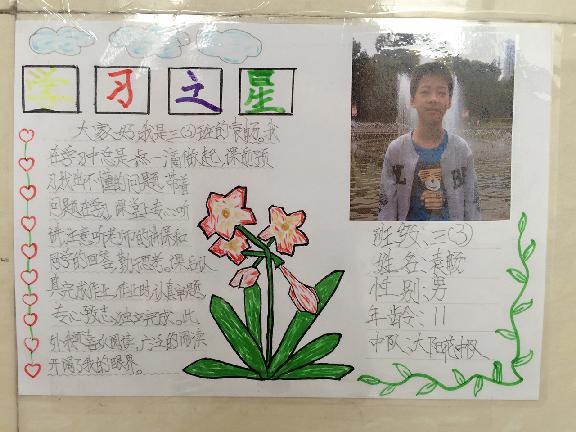 学习之星
大家好,我是三(3)班的袁畅。我
在学习中总是点一滴做起,课前预
习找出不懂的问题,带着
问题在学。课堂上专心听
讲,注意听老师的讲课和
同学的回答,勤于思考。课后认
真完成作业,作业时认真审题,
专心致志,独立完成。此
外,我喜欢阅读,广泛的阅读
开阔了我的眼界。
班级:三(3)
姓名:袁畅
性别:男
年龄:11
中队:太阳花中队